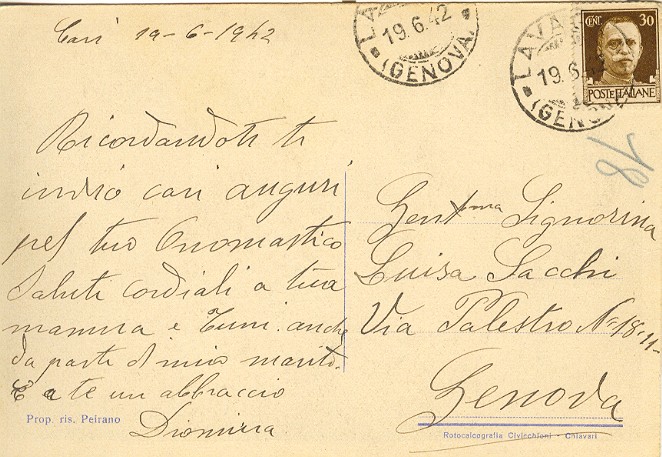 Cavi 19-6-1942
LAVA
19.6.42
(GENOVA)
LAVA
19.6
(GENOV
CENT. 30
POSTE ITALIANE
18
Ricordandoti ti
invio cari auguri
pel tuo Onomastico
Saluti cordiali a tua
mamma e Tuni. anche
da parte di mio marito.
E a te un abbraccio
Diomira
Prop. ris. Peirano
Gent.ma Signorina
Luisa Sacchi
Via Palestro N-18-11-
Genova
Rotocalcografia Civicchioni - Chiavari